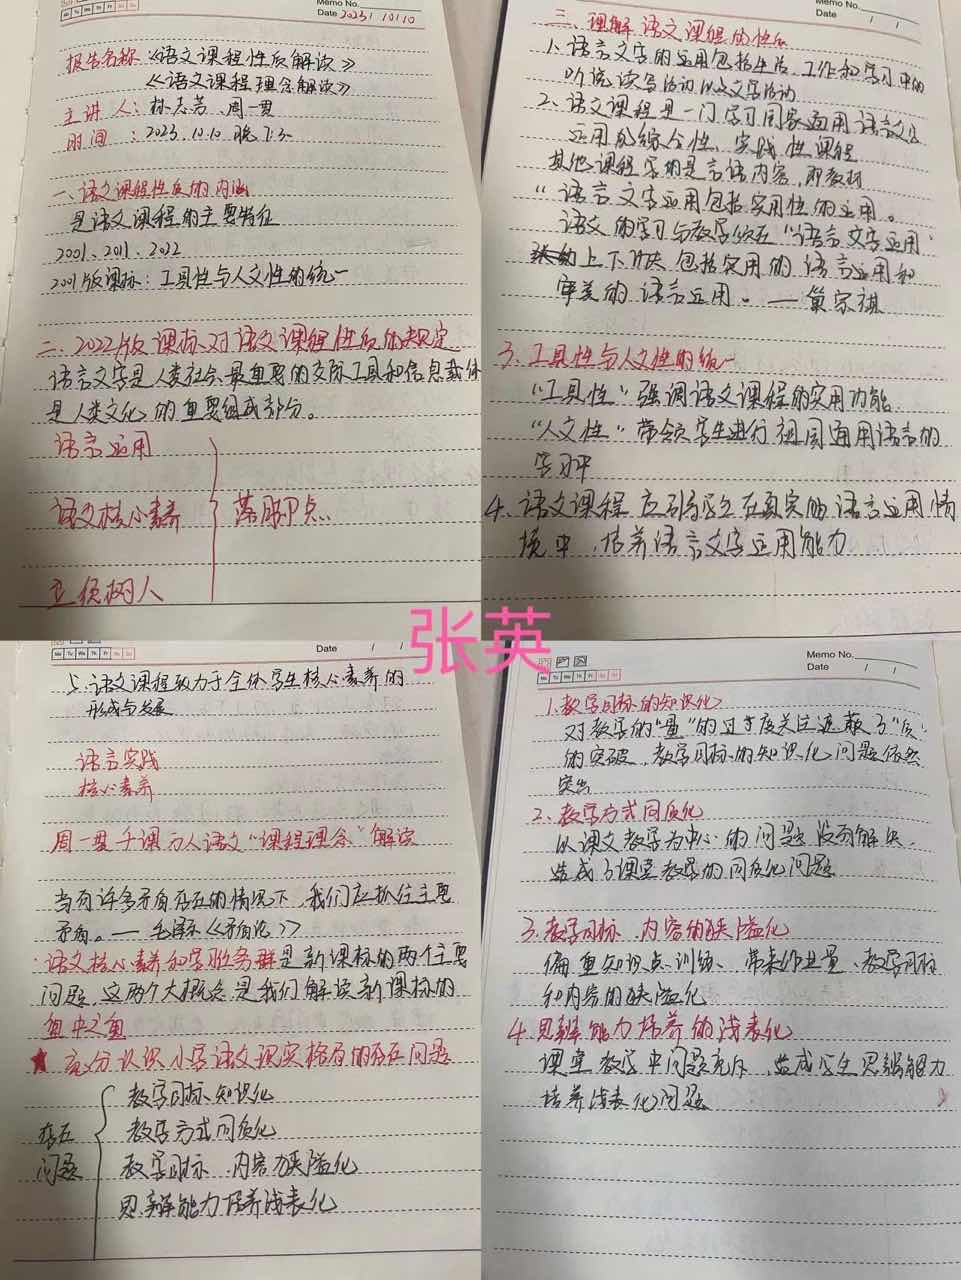 Memo No.
Mo Tu We Th Fr Sa Su
Date 2023/10/10
报告名称《语文课程性质解读》
《语文课程理念解读》
主讲人：林志芳、周一贯
时间：2023.10.10 晚7:3
一、语文课程性质的内涵
是语文课程的主要特征
2001、2011、2022
2001版课标：工具性与人文性的统一
二、2022版课标对语文课程性质的规定
语言文字是人类社会最重要的交际工具和信息载体
是人类文化的重要组成部分。
语言运用
语文核心素养 落脚点
立德树人
Memo No.
Date / /
三、理解语文课程的性质
1、语言文字的运用包括生活、工作和学习中的
听说读写活动以及文学活动
2、语文课程是一门学习国家通用语言文字
运用的综合性、实践性课程
其他课程学的是言语内容，即教材
"语言文字运用包括实用性的运用。
语文的学习与教学须在"语言文字运用"
上下功夫 包括实用的语言运用和
审美的语言运用。——巢宗祺
3、工具性与人文性的统一
"工具性"强调语文课程的实用功能
"人文性"带领学生进行祖国通用语言的
学习
4、语文课程应引导学生在真实的语言运用情
境中，培养语言文字运用能力
张英
Mo Tu We Th Fr Sa Su
Date / /
5、语文课程致力于全体学生核心素养的
形成与发展
语言实践
核心素养
周一贯 千课万人语文"课程理念"解读
当有许多矛盾存在的情况下，我们应抓住主要
矛盾。——毛泽东《矛盾论》
语文核心素养和学习任务群是新课标的两个主要
问题，这两个大概念是我们解读新课标的
重中之重
★ 充分认识小学语文课堂格局的存在问题
存在
问题
教学目标知识化
教学方式同质化
教学目标、内容狭隘化
思辨能力培养浅表化
Memo No.
Mo Tu We Th Fr Sa Su
Date / /
1、教学目标的知识化
对教学的"量"的过度关注遮蔽了"质"
的突破，教学目标的知识化问题依然
突出
2、教学方式同质化
以课文教学为中心的问题没有解决，
造成了课堂教学的同质化问题
3、教学目标、内容的狭隘化
偏重知识点训练、带来作业量、教学目标
和内容的狭隘化
4、思辨能力培养的浅表化
课堂教学中问题充斥，造成学生思辨能力
培养浅表化问题